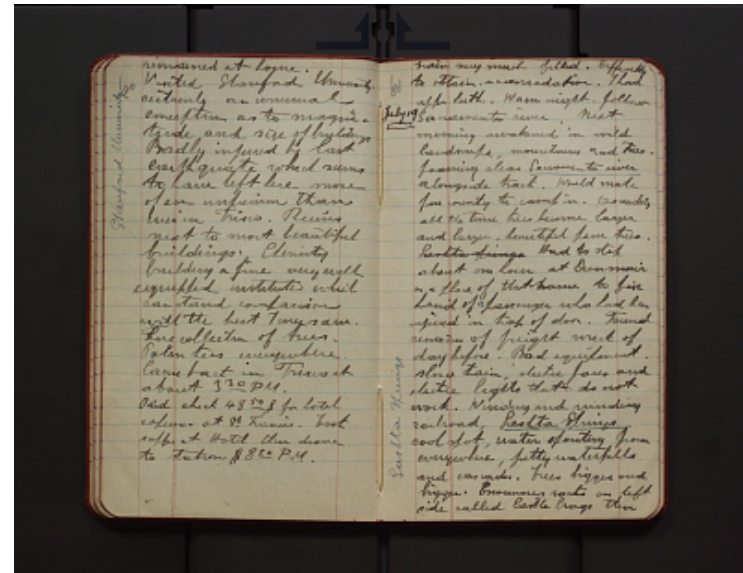 Stanford University
remained at home.
Visited Stanford University
certainly an unusual
conception as to magni-
tude and size of buildings
Badly injured by last
earthquake which seems
to have left here more
of an impression than
even in Frisco. Ruins
next to most beautiful
buildings. Chemistry
building a fine very well
equipped institute which
can stand comparison
with the best I ever saw.
Rare collection of trees.
Palm trees everywhere.
Came back in Frisco at
about 3 30 P.M.
Paid check 48 50 $ for hotel
expenses at St Francis. Took
supper at Hotel then drove
to station 8 20 P.M.
train very much filled. Difficulty
to obtain accomodation. I had
upper berth. Warm night. follow
July 19
Sacramento river. Next
morning awakened in wild
landscape, mountains and trees.
foaming clear Sacramento river
alongside track. Would make
fine country to camp in.
all the time trees become larger
and larger. beautiful pine trees.
Shasta Springs Had to stop
about one hour at Dunsmuir
a place of that name to
hand of a passenger who had
in of door. Found
remains of freight wreck of
day before. Bad equipment.
slow train, electric fans and
electric lights that do not
work. Winding and winding
railroad, Shasta Springs
cool spot, water spouting from
everywhere, pretty waterfalls
and cascades. trees bigger and
bigger. Enormous rocks on left
side called Castle Crags then
Shasta Springs